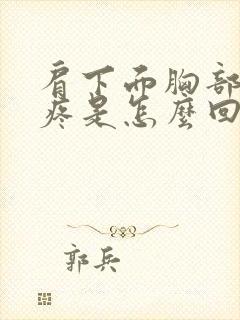 肩下面胸部
疼是怎麼回
郭兵